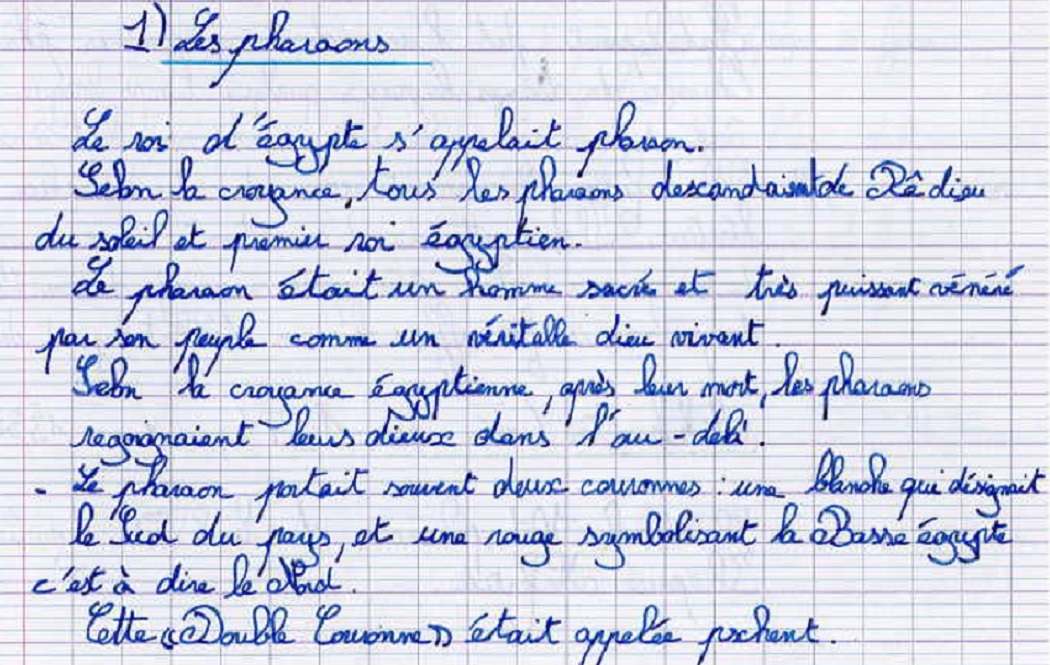 1) Les pharaons
Le roi d'égypte s'appelait pharaon.
Selon la croyance, tous les pharaons descandaient de Rê dieu
du soleil et premier roi égyptien.
Le pharaon était un homme sacré et très puissant vénéré
par son peuple comme un véritable dieu vivant.
Selon la croyance égyptienne, après leur mort, les pharaons
regoignaient leurs dieux dans l'au-delà.
- Le pharaon portait souvent deux couronnes : une blanche qui désignait
le Sud du pays, et une rouge symbolisant la Basse égypte
c'est à dire le Nord.
Cette « Double Couronne » était appelée pschent.